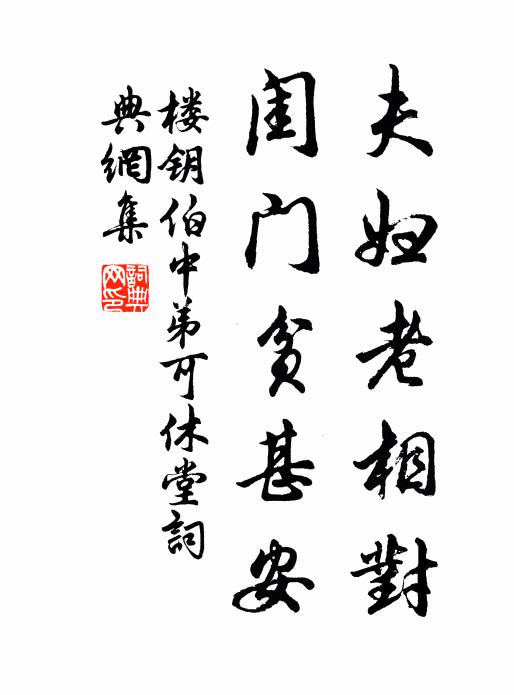 夫妇老相對
闺门贫甚安
楼钥伯中弟可休堂詞
典網集
詞典网印